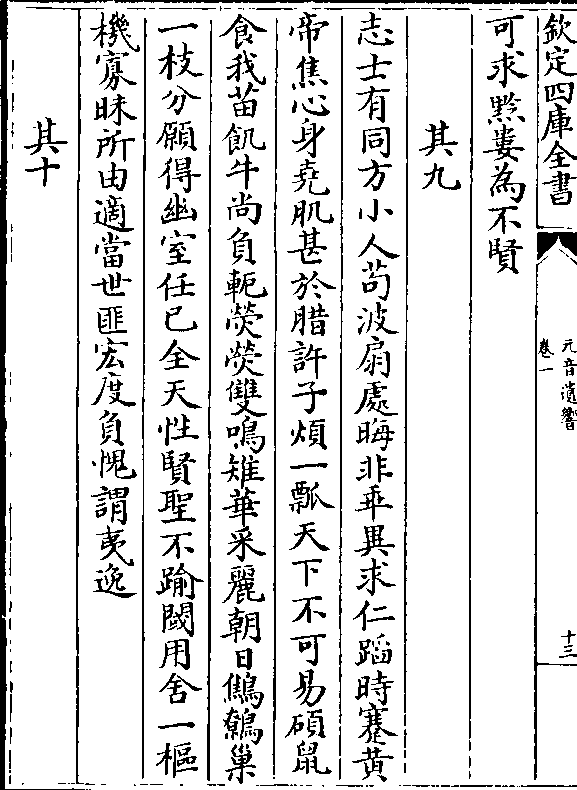 欽定四庫全書
元音遺響
卷一
十三
可求黔婁為不賢
其九
志士有同方小人茍波扇處晦非乖異求仁蹈時蹇黄
帝焦心身堯肌甚於腊許子煩一瓢天下不可易碩鼠
食我苗飢牛尚負軛熒熒雙鳴雉華采麗朝日鷦鷯巢
一枝分願得幽室任已全天性賢聖不踰閾用舍一樞
機寡昧所由適當世匪宏度負愧謂夷逸
其十